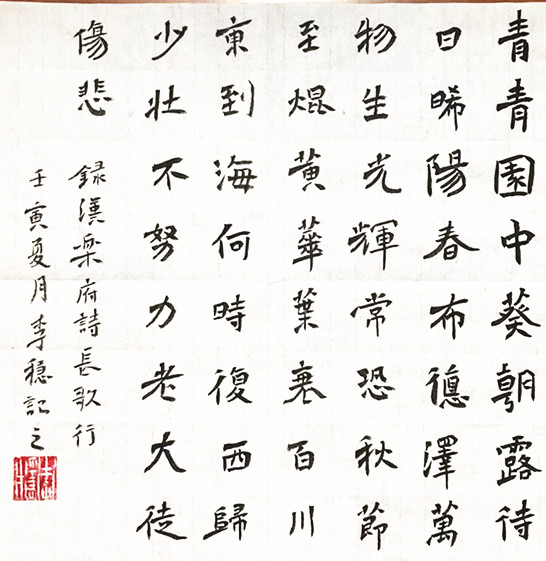 青青園中葵朝露待
日晞陽春布德澤萬
物生光輝常恐秋節
至焜黃華葉衰百川
東到海何時復西歸
少壯不努力老大徒
傷悲 録漢楽府詩長歌行
壬寅夏月李穩記之